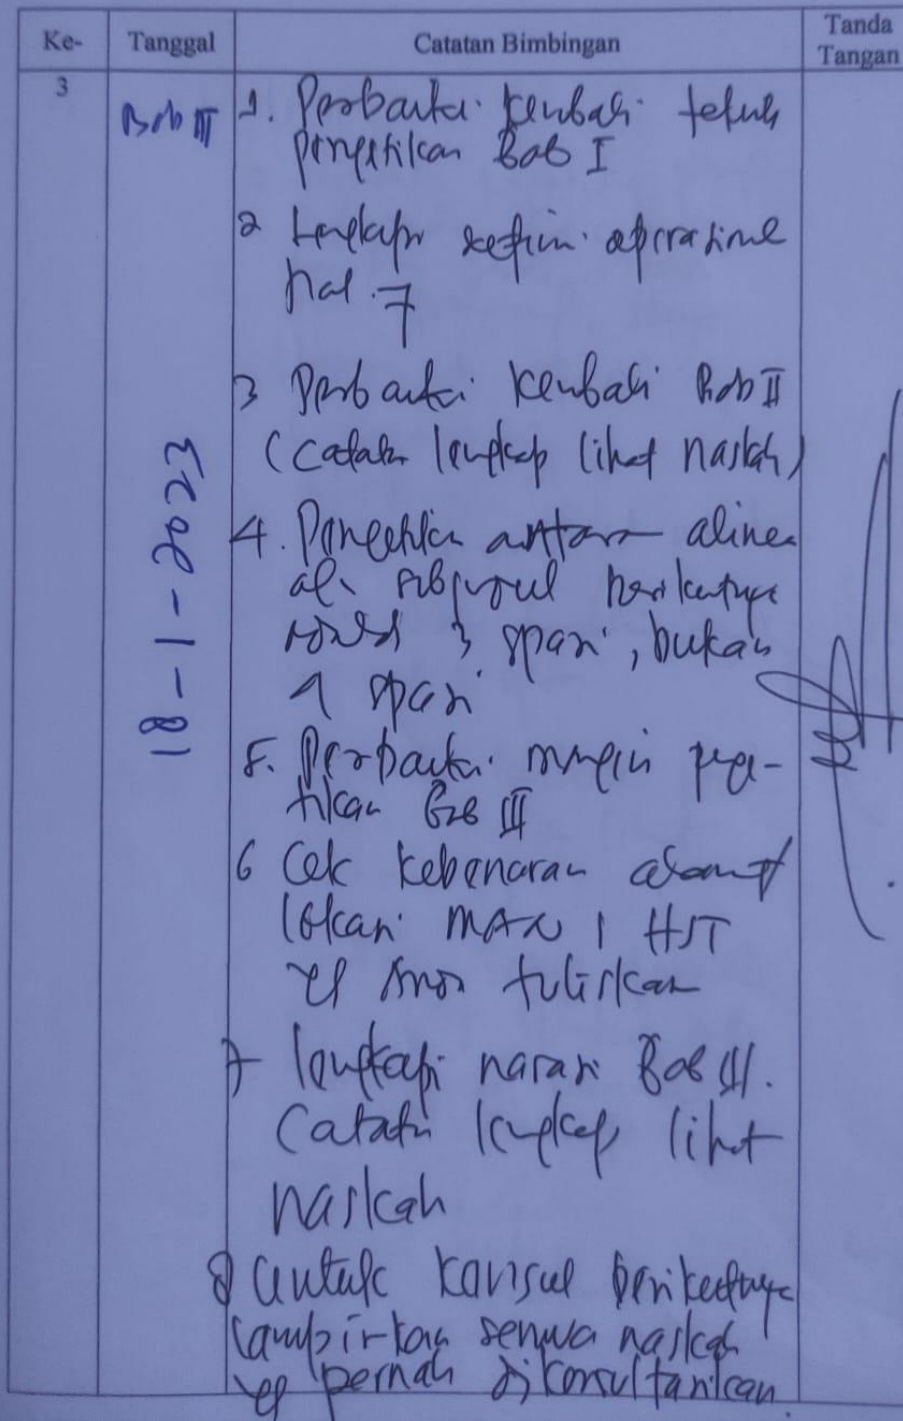 Ke- Tanggal Catatan Bimbingan Tanda Tangan
3
Bab III
18-1-2023
1. Perbaiki kembali teknik
pengetikan Bab I
2 Lengkapi defini operasional
hal. 7
3 Perbaiki kembali Bab II
(catatan lengkap lihat naskah)
4. Pengetikan antara alinea
dg subjudul berikutnya
3 spasi, bukan
1 spasi
5. Perbaiki margin penge-
tikan Bab III
6 Cek kebenaran alamat
lokasi MAN 1 HST
yg tuliskan
7 lengkapi narasi Bab III.
Catatan lengkap lihat
naskah
8 untuk konsul berikutnya
lampirkan semua naskah
yg pernah dikonsultasikan